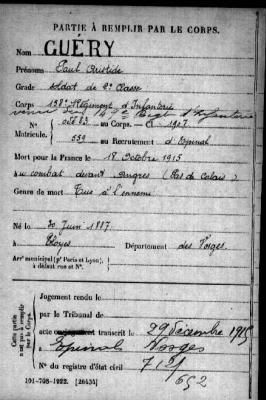 PARTIE À REMPLIR PAR LE CORPS.
Nom GUÉRY
Prénoms Paul Aristide
Grade soldat de 2e Classe
Corps 128e Régiment d'Infanterie
venu du 47e Regt d'Infanterie
N° au Corps. — Cl 1907
Matricule. 559 au Recrutement d'Epinal
Mort pour la France le 18 Octobre 1915
au combat devant Angres (Pas de Calais)
Genre de mort Tué à l'ennemi
Né le 20 Juin 1887
Eloyes Département des Vosges
Arrt municipal (pr Paris et Lyon),
à défaut rue et N°.
Cette partie
n'est pas à remplir
par le Corps.
Jugement rendu le
par le Tribunal de
acte ou jugement transcrit le 29 décembre 1915
à Epinal Vosges
N° du registre d'état civil
101-708-1922. [26434]
652